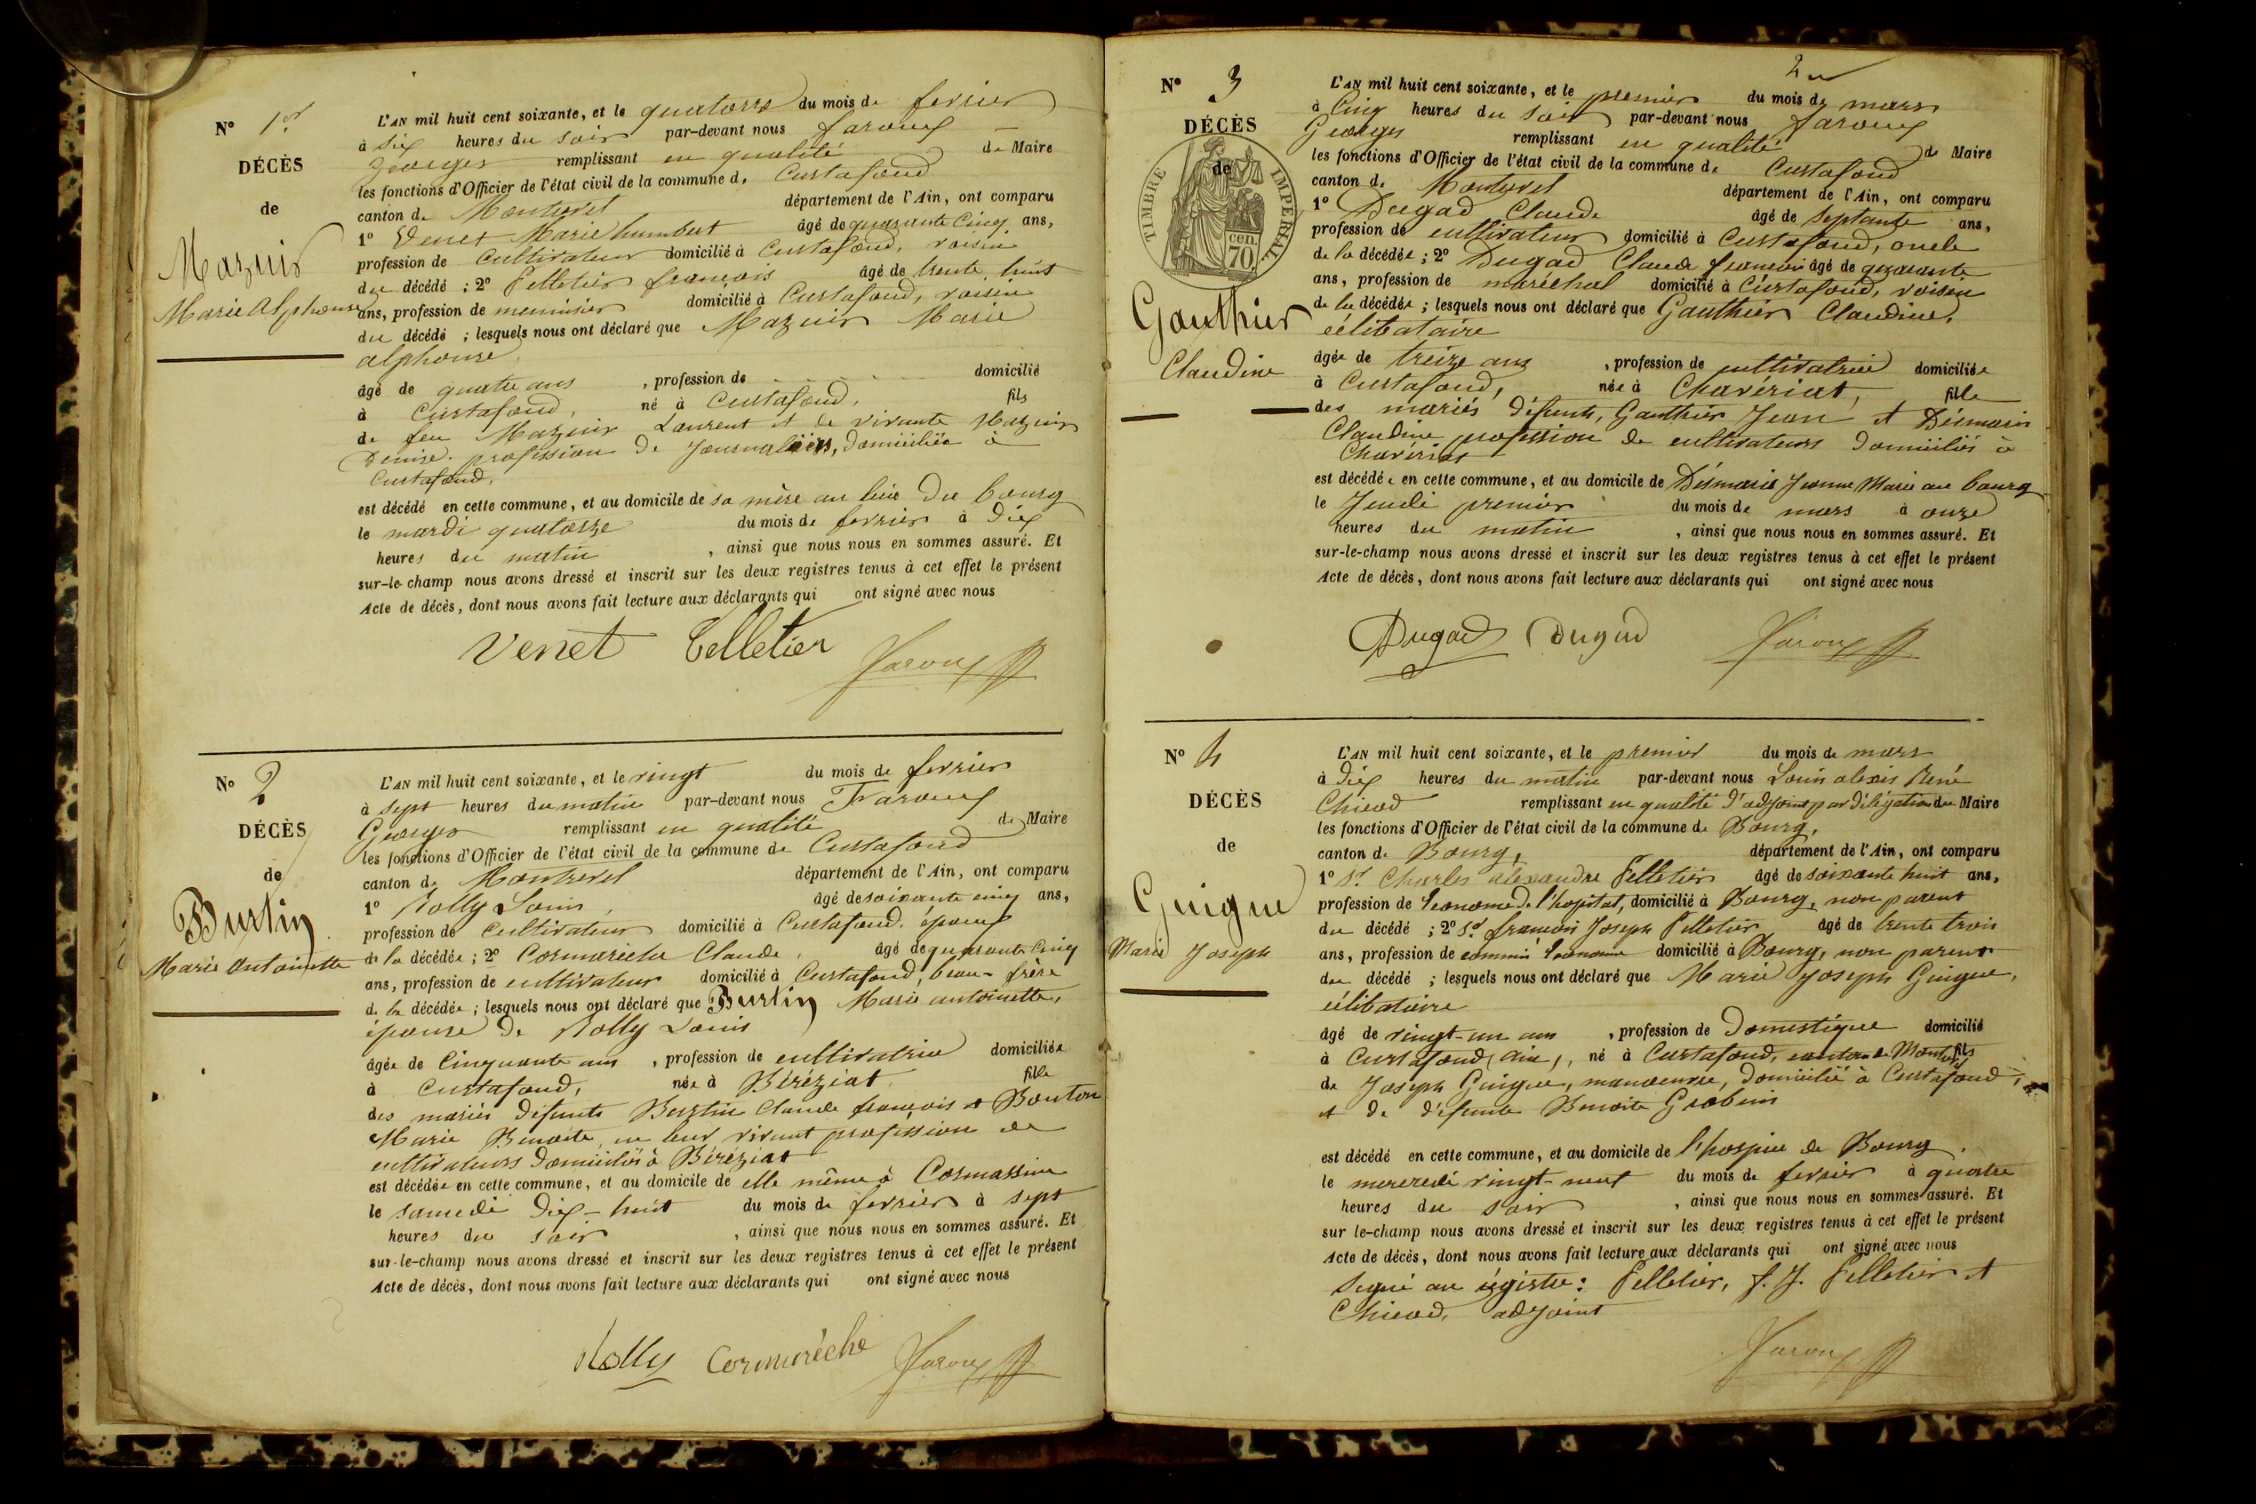 N° 1er
DÉCÈS
de
Mazuir
Marie Alphonse
L'AN mil huit cent soixante, et le quatorze du mois de fevrier
à six heures du soir par-devant nous faroux
Georges remplissant en qualité de Maire
les fonctions d'Officier de l'état civil de la commune de Curtafond
canton de Montrevel département de l'Ain, ont comparu
1° Venet Marie humbert âgé de quarante Cinq ans,
profession de Cultivateur domicilié à Curtafond, voisin
du décédé ; 2° Pelletier françois âgé de trente huit
ans, profession de menuisier domicilié à Curtafond, voisin
du décédé ; lesquels nous ont déclaré que Mazuir Marie
alphonse
âgé de quatre ans , profession de domicilié
à Curtafond, né à Curtafond, fils
de feu Mazuir Laurent et de vivante Mazuir
Denise. profession de Journaliers, domiciliée à
Curtafond,
est décédé en cette commune, et au domicile de sa mère au lieu du bourg
le mardi quatorze du mois de fevrier à dix
heures du matin , ainsi que nous nous en sommes assuré. Et
sur-le-champ nous avons dressé et inscrit sur les deux registres tenus à cet effet le présent
Acte de décès, dont nous avons fait lecture aux déclarants qui ont signé avec nous
Venet Pelletier Faroux
N° 2
DÉCÈS
de
Burtin
Marie Antoinette
L'AN mil huit cent soixante, et le vingt du mois de fevrier
à sept heures du matin par-devant nous Faroux
Georges remplissant en qualité de Maire
les fonctions d'Officier de l'état civil de la commune de Curtafond
canton de Montrevel département de l'Ain, ont comparu
1° Rolly Louis âgé de soixante cinq ans,
profession de Cultivateur domicilié à Curtafond, époux
de la décédée ; 2° Cormorèche Claude, âgé de quarante Cinq
ans, profession de cultivateur domicilié à Curtafond, beau-frère
de la décédée ; lesquels nous ont déclaré que Burtin Marie antoinette,
épouse de Rolly Louis
âgée de Cinquante ans , profession de cultivatrice domiciliée
à Curtafond, née à Béréziat fille
des mariés défunts Burtin Claude françois et Bouton
Marie Benoite, en leur vivant profession de
cultivateurs domiciliés à Béréziat
est décédée en cette commune, et au domicile de elle même à Cormassine
le samedi dix-huit du mois de fevrier à sept
heures du soir , ainsi que nous nous en sommes assuré. Et
sur-le-champ nous avons dressé et inscrit sur les deux registres tenus à cet effet le présent
Acte de décès, dont nous avons fait lecture aux déclarants qui ont signé avec nous
Rolly Cormorèche Faroux
N° 3
DÉCÈS
de
TIMBRE IMPÉRIAL
70 cen.
Gauthier
Claudine
L'AN mil huit cent soixante, et le premier du mois de mars
à Cinq heures du soir par-devant nous faroux
Georges remplissant en qualité de Maire
les fonctions d'Officier de l'état civil de la commune de Curtafond
canton de Montrevel département de l'Ain, ont comparu
1° Dugad Claude âgé de septante ans,
profession de cultivateur domicilié à Curtafond, oncle
de la décédée ; 2° Dugad Claude françois âgé de quarante
ans, profession de maréchal domicilié à Curtafond, voisin
de la décédée ; lesquels nous ont déclaré que Gauthier Claudine,
célibataire
âgée de treize ans , profession de cultivatrice domiciliée
à Curtafond, née à Chavériat, fille
des mariés défunts, Gauthier Jean et Désmaris
Claudine profession de cultivateurs domiciliés à
Chavériat
est décédée en cette commune, et au domicile de Désmaris Jeanne Marie au bourg
le Jeudi premier du mois de mars à onze
heures du matin , ainsi que nous nous en sommes assuré. Et
sur-le-champ nous avons dressé et inscrit sur les deux registres tenus à cet effet le présent
Acte de décès, dont nous avons fait lecture aux déclarants qui ont signé avec nous
Dugad Dugad Faroux
N° 4
DÉCÈS
de
Guigue
Marie Joseph
L'AN mil huit cent soixante, et le premier du mois de mars
à dix heures du matin par-devant nous Louis alexis René
Chicod remplissant en qualité d'adjoint par délégation du Maire
les fonctions d'Officier de l'état civil de la commune de Bourg,
canton de Bourg, département de l'Ain, ont comparu
1° Sr. Charles alexandre Pelletier âgé de soixante huit ans,
profession de économe de l'hopital, domicilié à Bourg, non parent
du décédé ; 2° Sr. françois Joseph Pelletier âgé de trente trois
ans, profession de commis économe domicilié à Bourg, non parent
du décédé ; lesquels nous ont déclaré que Marie Joseph Guigue,
célibataire
âgé de vingt-un ans , profession de Domestique domicilié
à Curtafond (ain), né à Curtafond, canton de Montrevel fils
de Joseph Guigue, manoeuvre, domicilié à Curtafond,
et de défunte Benoite Grobuis
est décédé en cette commune, et au domicile de l'hospice de Bourg
le mercredi vingt-neuf du mois de fevrier à quatre
heures du soir , ainsi que nous nous en sommes assuré. Et
sur le-champ nous avons dressé et inscrit sur les deux registres tenus à cet effet le présent
Acte de décès, dont nous avons fait lecture aux déclarants qui ont signé avec nous
Signé au régistre : Pelletier, f. J. Pelletier et
Chicod, adjoint
Faroux